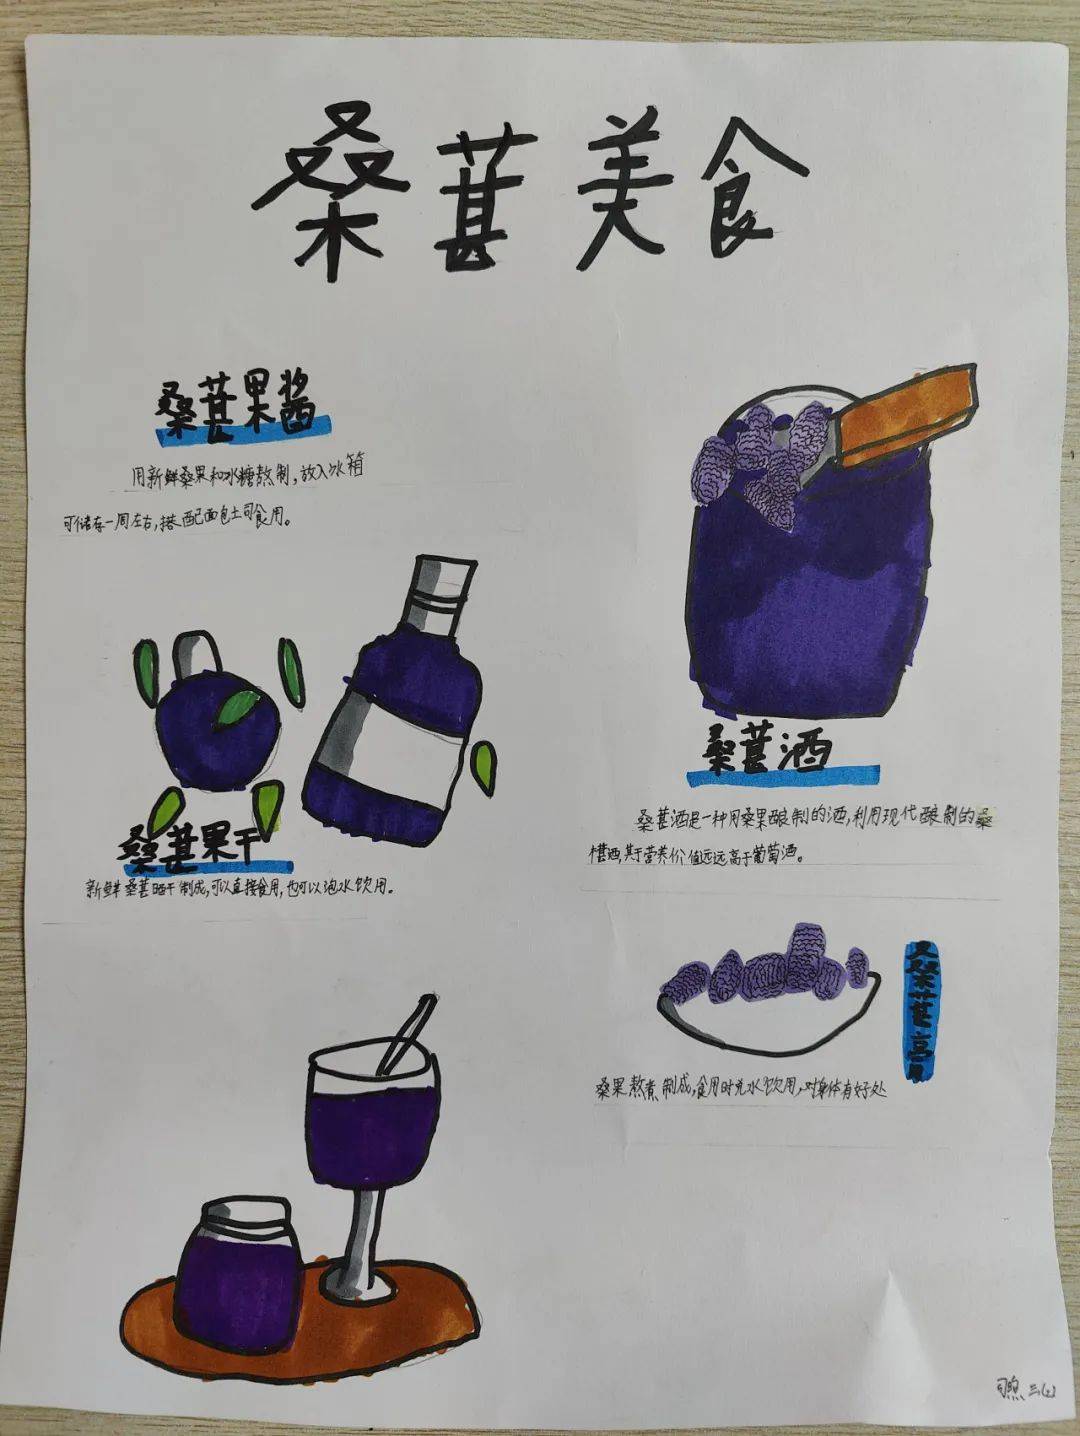 桑葚美食
桑葚果酱
用新鲜桑果和冰糖熬制,放入冰箱
可储存一周左右,搭配面包土司食用。
桑葚果干
新鲜桑葚晒干制成,可以直接食用,也可以泡水饮用。
桑葚酒
桑葚酒是一种用桑果酿制的酒,利用现代酿制的桑
椹酒其于营养价值远远高于葡萄酒。
桑葚膏
桑果熬煮制成,食用时兑水饮用,对身体有好处